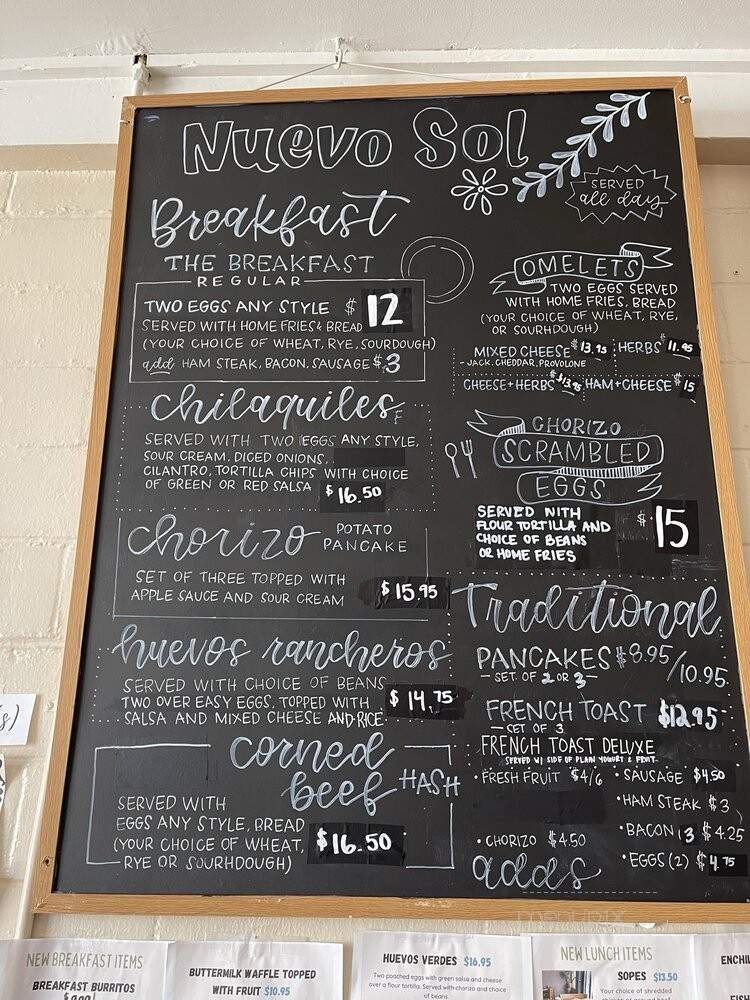 Nuevo Sol
SERVED
all day
Breakfast
THE BREAKFAST
REGULAR
TWO EGGS ANY STYLE $12
SERVED WITH HOME FRIES & BREAD
(YOUR CHOICE OF WHEAT, RYE, SOURDOUGH)
add HAM STEAK, BACON, SAUSAGE $3
chilaquiles
SERVED WITH TWO EGGS ANY STYLE,
SOUR CREAM, DICED ONIONS,
CILANTRO, TORTILLA CHIPS WITH CHOICE
OF GREEN OR RED SALSA $16.50
chorizo POTATO
PANCAKE
SET OF THREE TOPPED WITH
APPLE SAUCE AND SOUR CREAM $15.95
huevos rancheros
SERVED WITH CHOICE OF BEANS
TWO OVER EASY EGGS, TOPPED WITH
SALSA AND MIXED CHEESE AND RICE $14.75
corned
beef HASH
SERVED WITH
EGGS ANY STYLE, BREAD
(YOUR CHOICE OF WHEAT,
RYE OR SOURHDOUGH) $16.50
OMELETS
TWO EGGS SERVED
WITH HOME FRIES, BREAD
(YOUR CHOICE OF WHEAT, RYE,
OR SOURHDOUGH)
MIXED CHEESE $13.95 HERBS 11.95
- JACK, CHEDDAR, PROVOLONE
CHEESE+HERBS $13.95 HAM+CHEESE $15
CHORIZO
SCRAMBLED
EGGS
SERVED WITH
FLOUR TORTILLA AND
CHOICE OF BEANS
OR HOME FRIES
$15
Traditional
PANCAKES $8.95/10.95
- SET OF 2 OR 3 -
FRENCH TOAST $12.95
- SET OF 3
FRENCH TOAST DELUXE
SERVED W/ SIDE OF PLAIN YOGURT & FRUIT
• FRESH FRUIT $4/6
• SAUSAGE $4.50
• HAM STEAK $3
• BACON (3 $4.25
• CHORIZO $4.50
• EGGS (2) $4.75
adds
NEW BREAKFAST ITEMS
BREAKFAST BURRITOS
BUTTERMILK WAFFLE TOPPED
WITH FRUIT $10.95
HUEVOS VERDES $16.95
Two poached eggs with green salsa and cheese
over a flour tortilla. Served with chorizo and choice
of beans.
NEW LUNCH ITEMS
SOPES $13.50
Your choice of shredded
ENCHIL